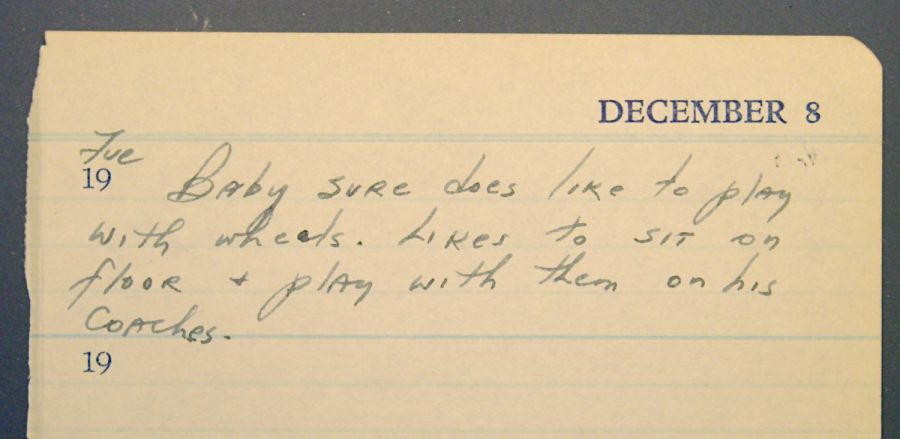 DECEMBER 8
Tue
19 Baby sure does like to play
with wheels. Likes to sit on
floor + play with them on his
Coaches.
19